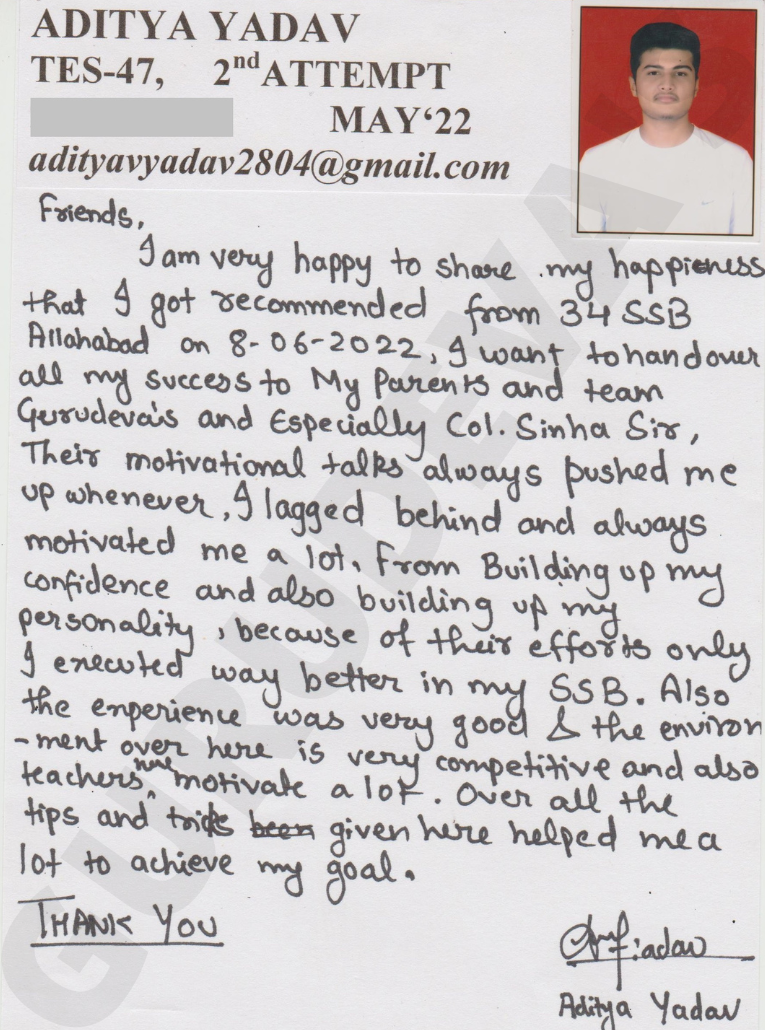 ADITYA YADAV
TES-47, 2nd ATTEMPT
MAY‘22
adityavyadav2804@gmail.com
Friends,
I am very happy to share my happieness
that I got recommended from 34 SSB
Allahabad on 8-06-2022, I want to handover
all my success to My Parents and team
Gurudeva's and Especially Col. Sinha Sir,
Their motivational talks always pushed me
up whenever, I lagged behind and always
motivated me a lot. From Building up my
confidence and also building up my
personality, because of their efforts only
I executed way better in my SSB. Also
the enperience was very good & the environ
-ment over here is very competitive and also
teachers here motivate a lot. Over all the
tips and tricks been given here helped me a
lot to achieve my goal.
THANK YOU
Aditya Yadav
GURUDEVA